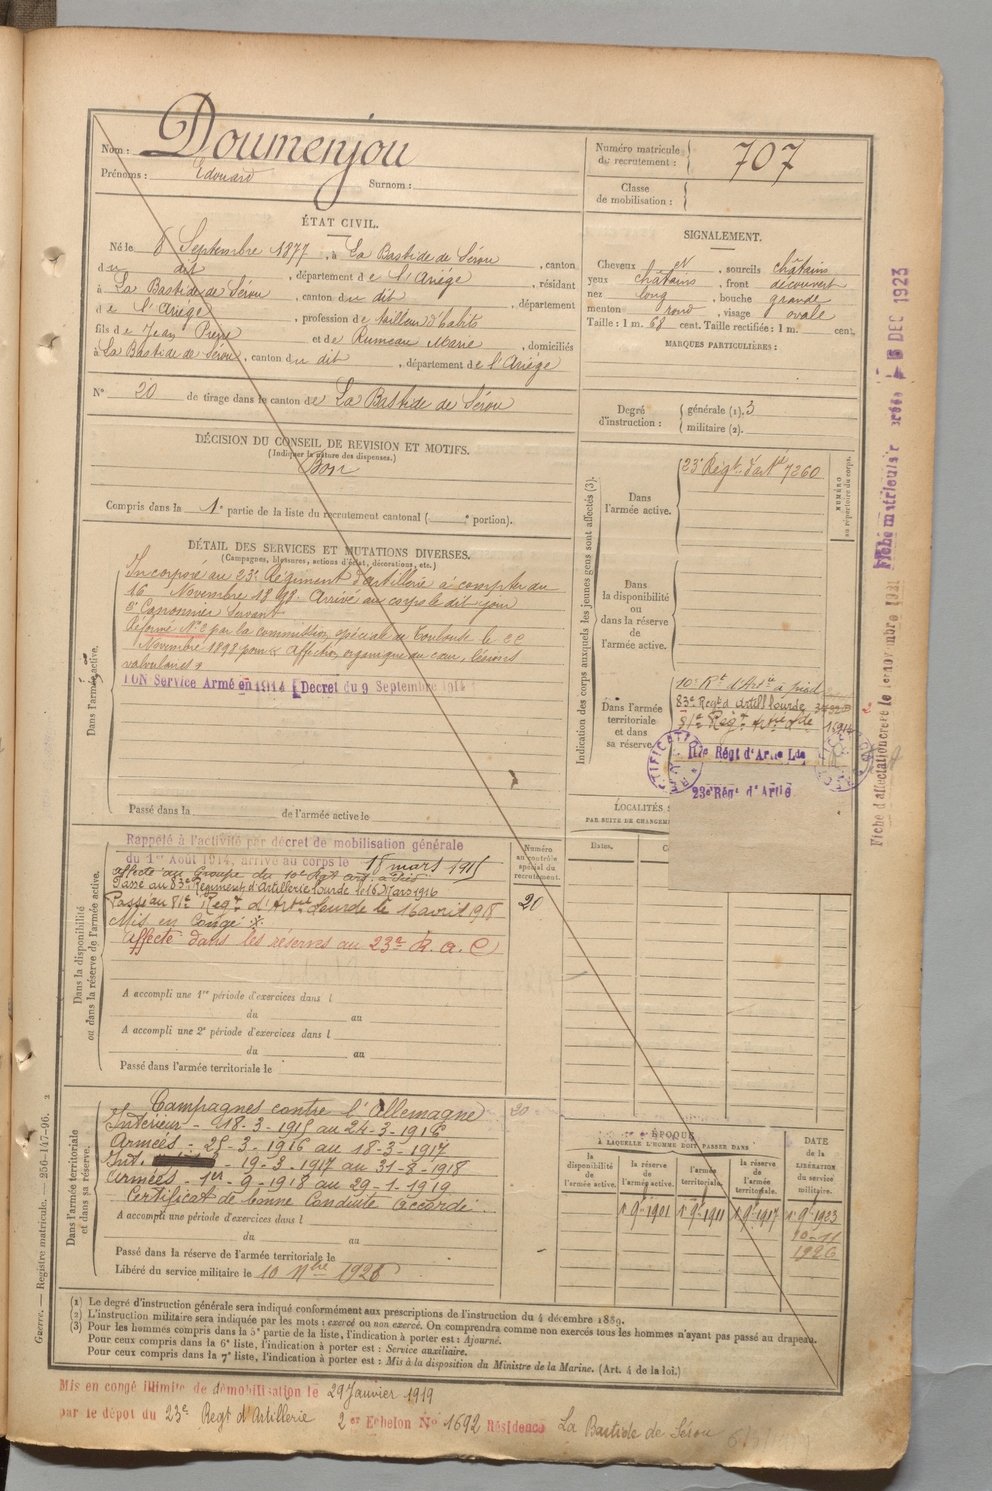 Nom : Doumenjou
Prénoms : Edouard
Surnom :
Numéro matricule de recrutement : 707
Classe de mobilisation :
ÉTAT CIVIL.
Né le 6 Septembre 1877, à La Bastide de Sérou, canton
du dit, département de l'Ariège, résidant
à La Bastide de Sérou, canton du dit, département
de l'Ariège, profession de tailleur d'habits
fils de Jean Pierre et de Rumeau Marie, domiciliés
à La Bastide de Sérou, canton du dit, département de l'Ariège
N° 20 de tirage dans le canton de La Bastide de Sérou
SIGNALEMENT.
Cheveux et, sourcils châtains
yeux châtains, front découvert
nez long, bouche grande
menton rond, visage ovale
Taille : 1 m. 68 cent. Taille rectifiée : 1 m. cent.
MARQUES PARTICULIÈRES :
Degré d'instruction : générale (1). 3
militaire (2).
DÉCISION DU CONSEIL DE REVISION ET MOTIFS.
(Indiquer la nature des dispenses.)
Bon
Compris dans la 1e partie de la liste du recrutement cantonal ( e portion).
DÉTAIL DES SERVICES ET MUTATIONS DIVERSES.
(Campagnes, blessures, actions d'éclat, décorations, etc.)
Dans l'armée active.
Incorporé au 23e Régiment d'artillerie à compter du
16 Novembre 1898. Arrivé au corps le dit jour
2e Cannonier Servant
Réformé N° 2 par la commission spéciale de Toulouse le 22
Novembre 1898 pour « Affection organique du cœur, lésions
valvulaires »
BON Service Armé en 1914 [Decret du 9 Septembre 1914
Passé dans la de l'armée active le
Indication des corps auxquels les jeunes gens sont affectés (3).
Dans l'armée active. 23e Régt. d'art. 7260
NUMÉRO au répertoire du corps.
Dans la disponibilité ou dans la réserve de l'armée active.
Dans l'armée territoriale et dans sa réserve.
10e Rt d'Artie à pied
83e Regt d'Artill lourde
81e Regt Artie Lde
117e Régt d'Artie Lde
23e Régt d'Artie
LOCALITÉS
PAR SUITE DE CHANGEM
Dates.
Dans la disponibilité ou dans la réserve de l'armée active.
Rappelé à l'activité par décret de mobilisation générale
du 1er Août 1914, arrivé au corps le 18 mars 1915
affecté au Groupe du 10e Rgt art. à Pied
Passé au 83e Régiment d'Artillerie lourde le 16 Mars 1916
Passé au 81e Regt d'Artie Lourde le 16 avril 1918
Mis en Congé
Affecté dans les réserves au 23e R. a. C
Numéro au contrôle spécial du recrutement.
20
A accompli une 1re période d'exercices dans l
du au
A accompli une 2e période d'exercices dans l
du au
Passé dans l'armée territoriale le
Dans l'armée territoriale et dans sa réserve.
Campagnes contre l'Allemagne
Intérieur - 18-3-1915 au 24-3-1916
Armées - 25-3-1916 au 18-3-1917
Int. - 19-3-1917 au 31-8-1918
Armées - 1er-9-1918 au 29-1-1919
Certificat de bonne Conduite accordé
20
A accompli une période d'exercices dans l
du au
Passé dans la réserve de l'armée territoriale le
Libéré du service militaire le 10 Nbre 1926
ÉPOQUE
À LAQUELLE L'HOMME DOIT PASSER DANS
la disponibilité de l'armée active.
la réserve de l'armée active.
l'armée territoriale.
la réserve de l'armée territoriale.
DATE de la LIBÉRATION du service militaire.
1 9e 1901
1 9e 1911
1 9e 1917
1 9e 1923
10-11
1926
(1) Le degré d'instruction générale sera indiqué conformément aux prescriptions de l'instruction du 4 décembre 1889.
(2) L'instruction militaire sera indiquée par les mots : exercé ou non exercé. On comprendra comme non exercés tous les hommes n'ayant pas passé au drapeau.
(3) Pour les hommes compris dans la 5e partie de la liste, l'indication à porter est : Ajourné.
Pour ceux compris dans la 6e liste, l'indication à porter est : Service auxiliaire.
Pour ceux compris dans la 7e liste, l'indication à porter est : Mis à la disposition du Ministre de la Marine. (Art. 4 de la loi.)
Mis en congé illimité de démobilisation le 29 Janvier 1919
par le dépot du 23e Regt d'Artillerie 2e Echelon N° 1692 Résidence La Bastide de Sérou
Guerre. — Registre matricule. — 256-147-96. 2
Fiche d'affectation créée le 1er novembre 1921 Fiche matriculaire créée 5 DEC 1923